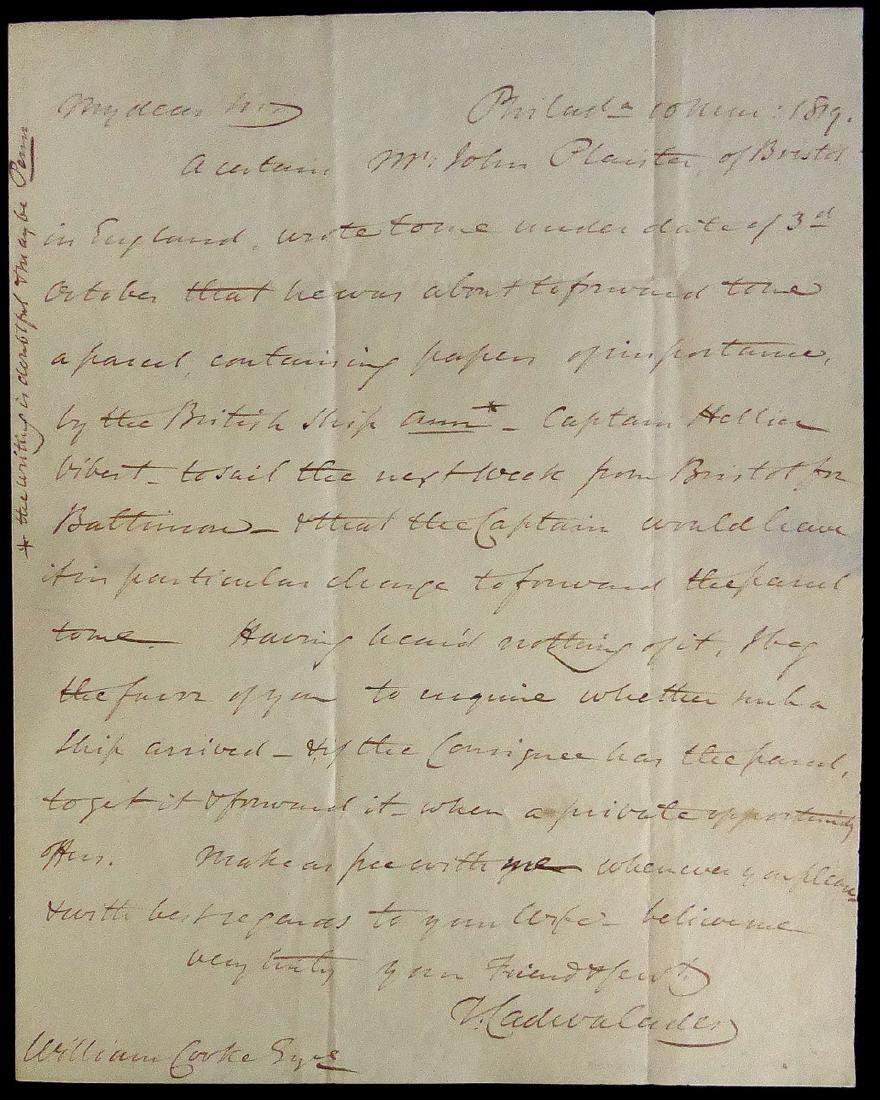 My dear Sir
Philada 10 Decm: 1819.
A certain Mr: John Plaister, of Bristol
in England, wrote to me under date of 3d
October that he was about to forward to me
a parcel, containing papers of importance,
by the British Ship Ann* - Captain Hellier
Vibert - to sail the next Week from Bristol for
Baltimore - & that the Captain would leave
it in particular charge to forward the parcel
to me. Having heard nothing of it, I beg
the favor of you to enquire whether such a
Ship arrived - & if the Consignee has the parcel,
to get it & forward it - when a private opportunity
offers. Make as free with me whenever you please
& with best regards to your Wife believe me
very truly your Friend & servt.
T. Cadwalader
William Cooke Esqre
* the writing is doubtful & may be Penn